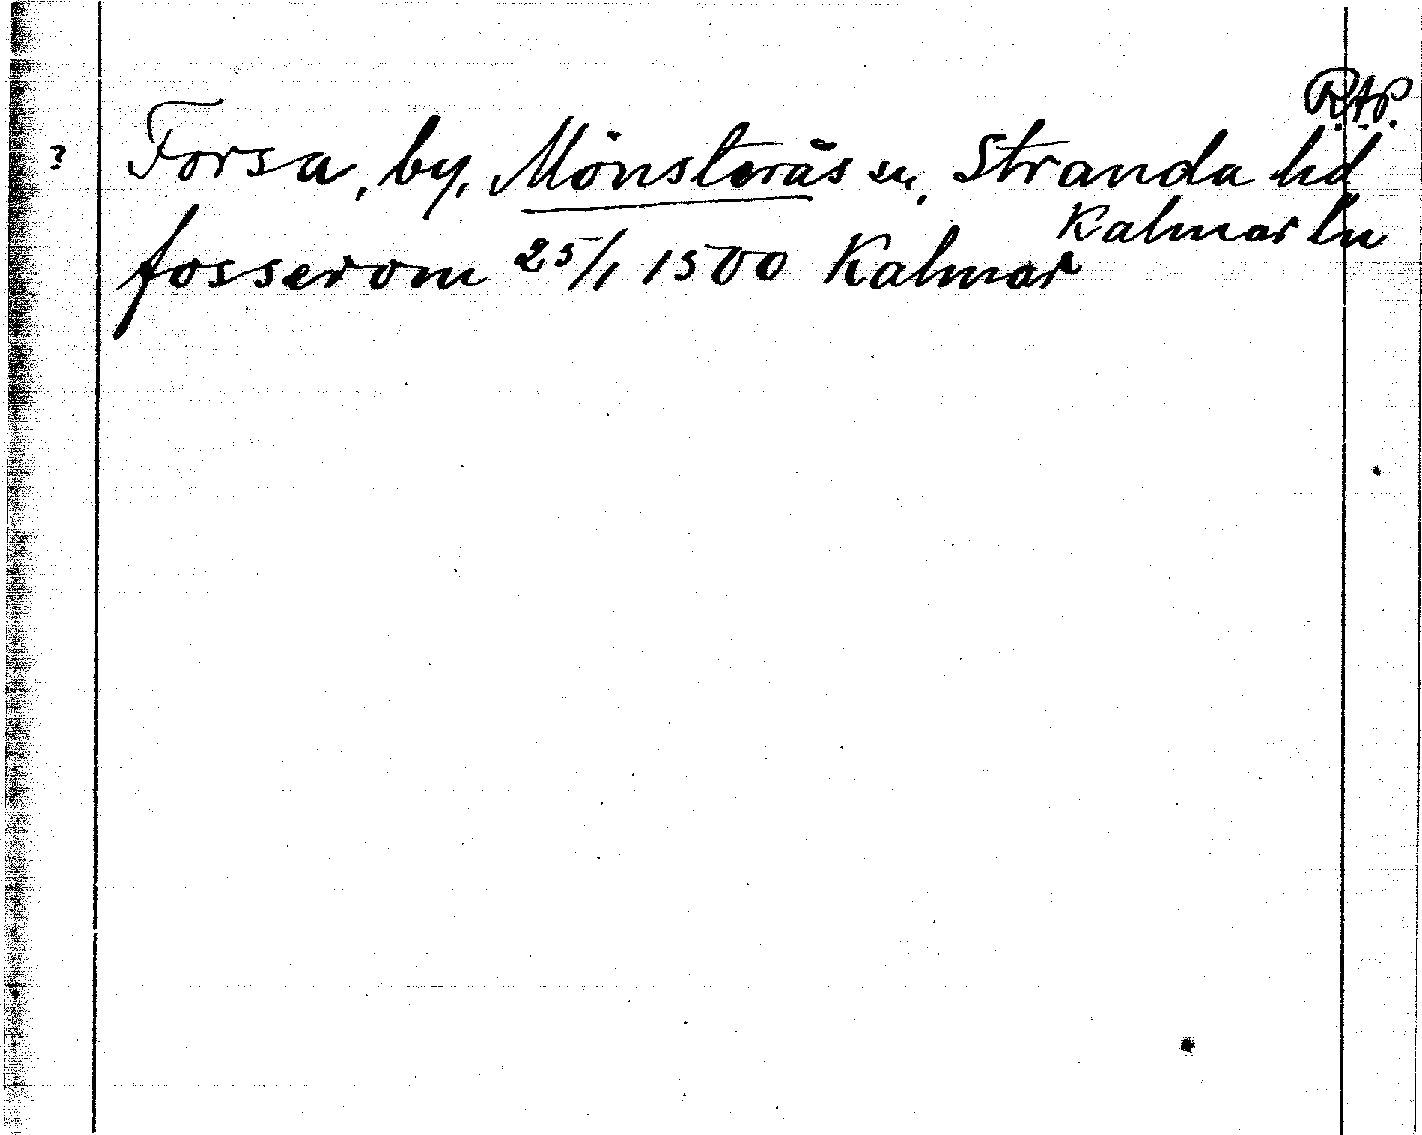 R.A.P.
? Forsa, by, Mönsterås sn, Stranda hd
Kalmar ln
fosserom 25/1 1500 Kalmar